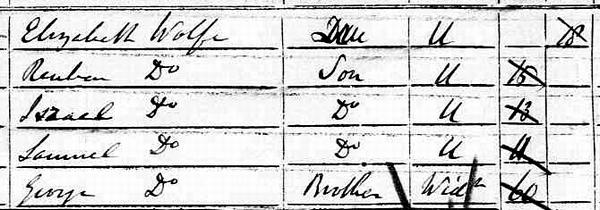 Elizabeth Wolfe Dau U 18
Reuben Do Son U 15
Israel Do Do U 13
Samuel Do Do U 11
George Do Brother Widr 60